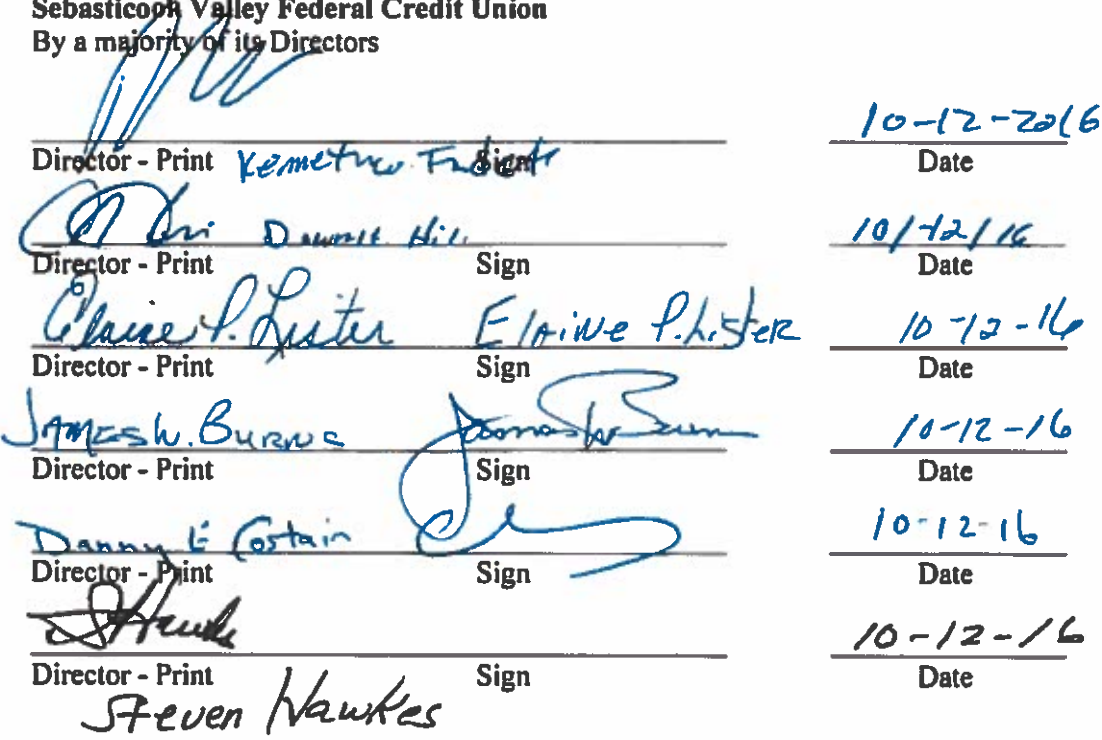 Sebasticook Valley Federal Credit Union
By a majority of its Directors
10-12-2016
Director - Print Sign Date
Hill 10/12/16
Director - Print Sign Date
Elaine P. Lister ElAiNe P. Lister 10-12-16
Director - Print Sign Date
JAMES W. BURNS James W Burns 10-12-16
Director - Print Sign Date
Danny E Costain 10-12-16
Director - Print Sign Date
S Hawkes 10-12-16
Director - Print Sign Date
Steven Hawkes